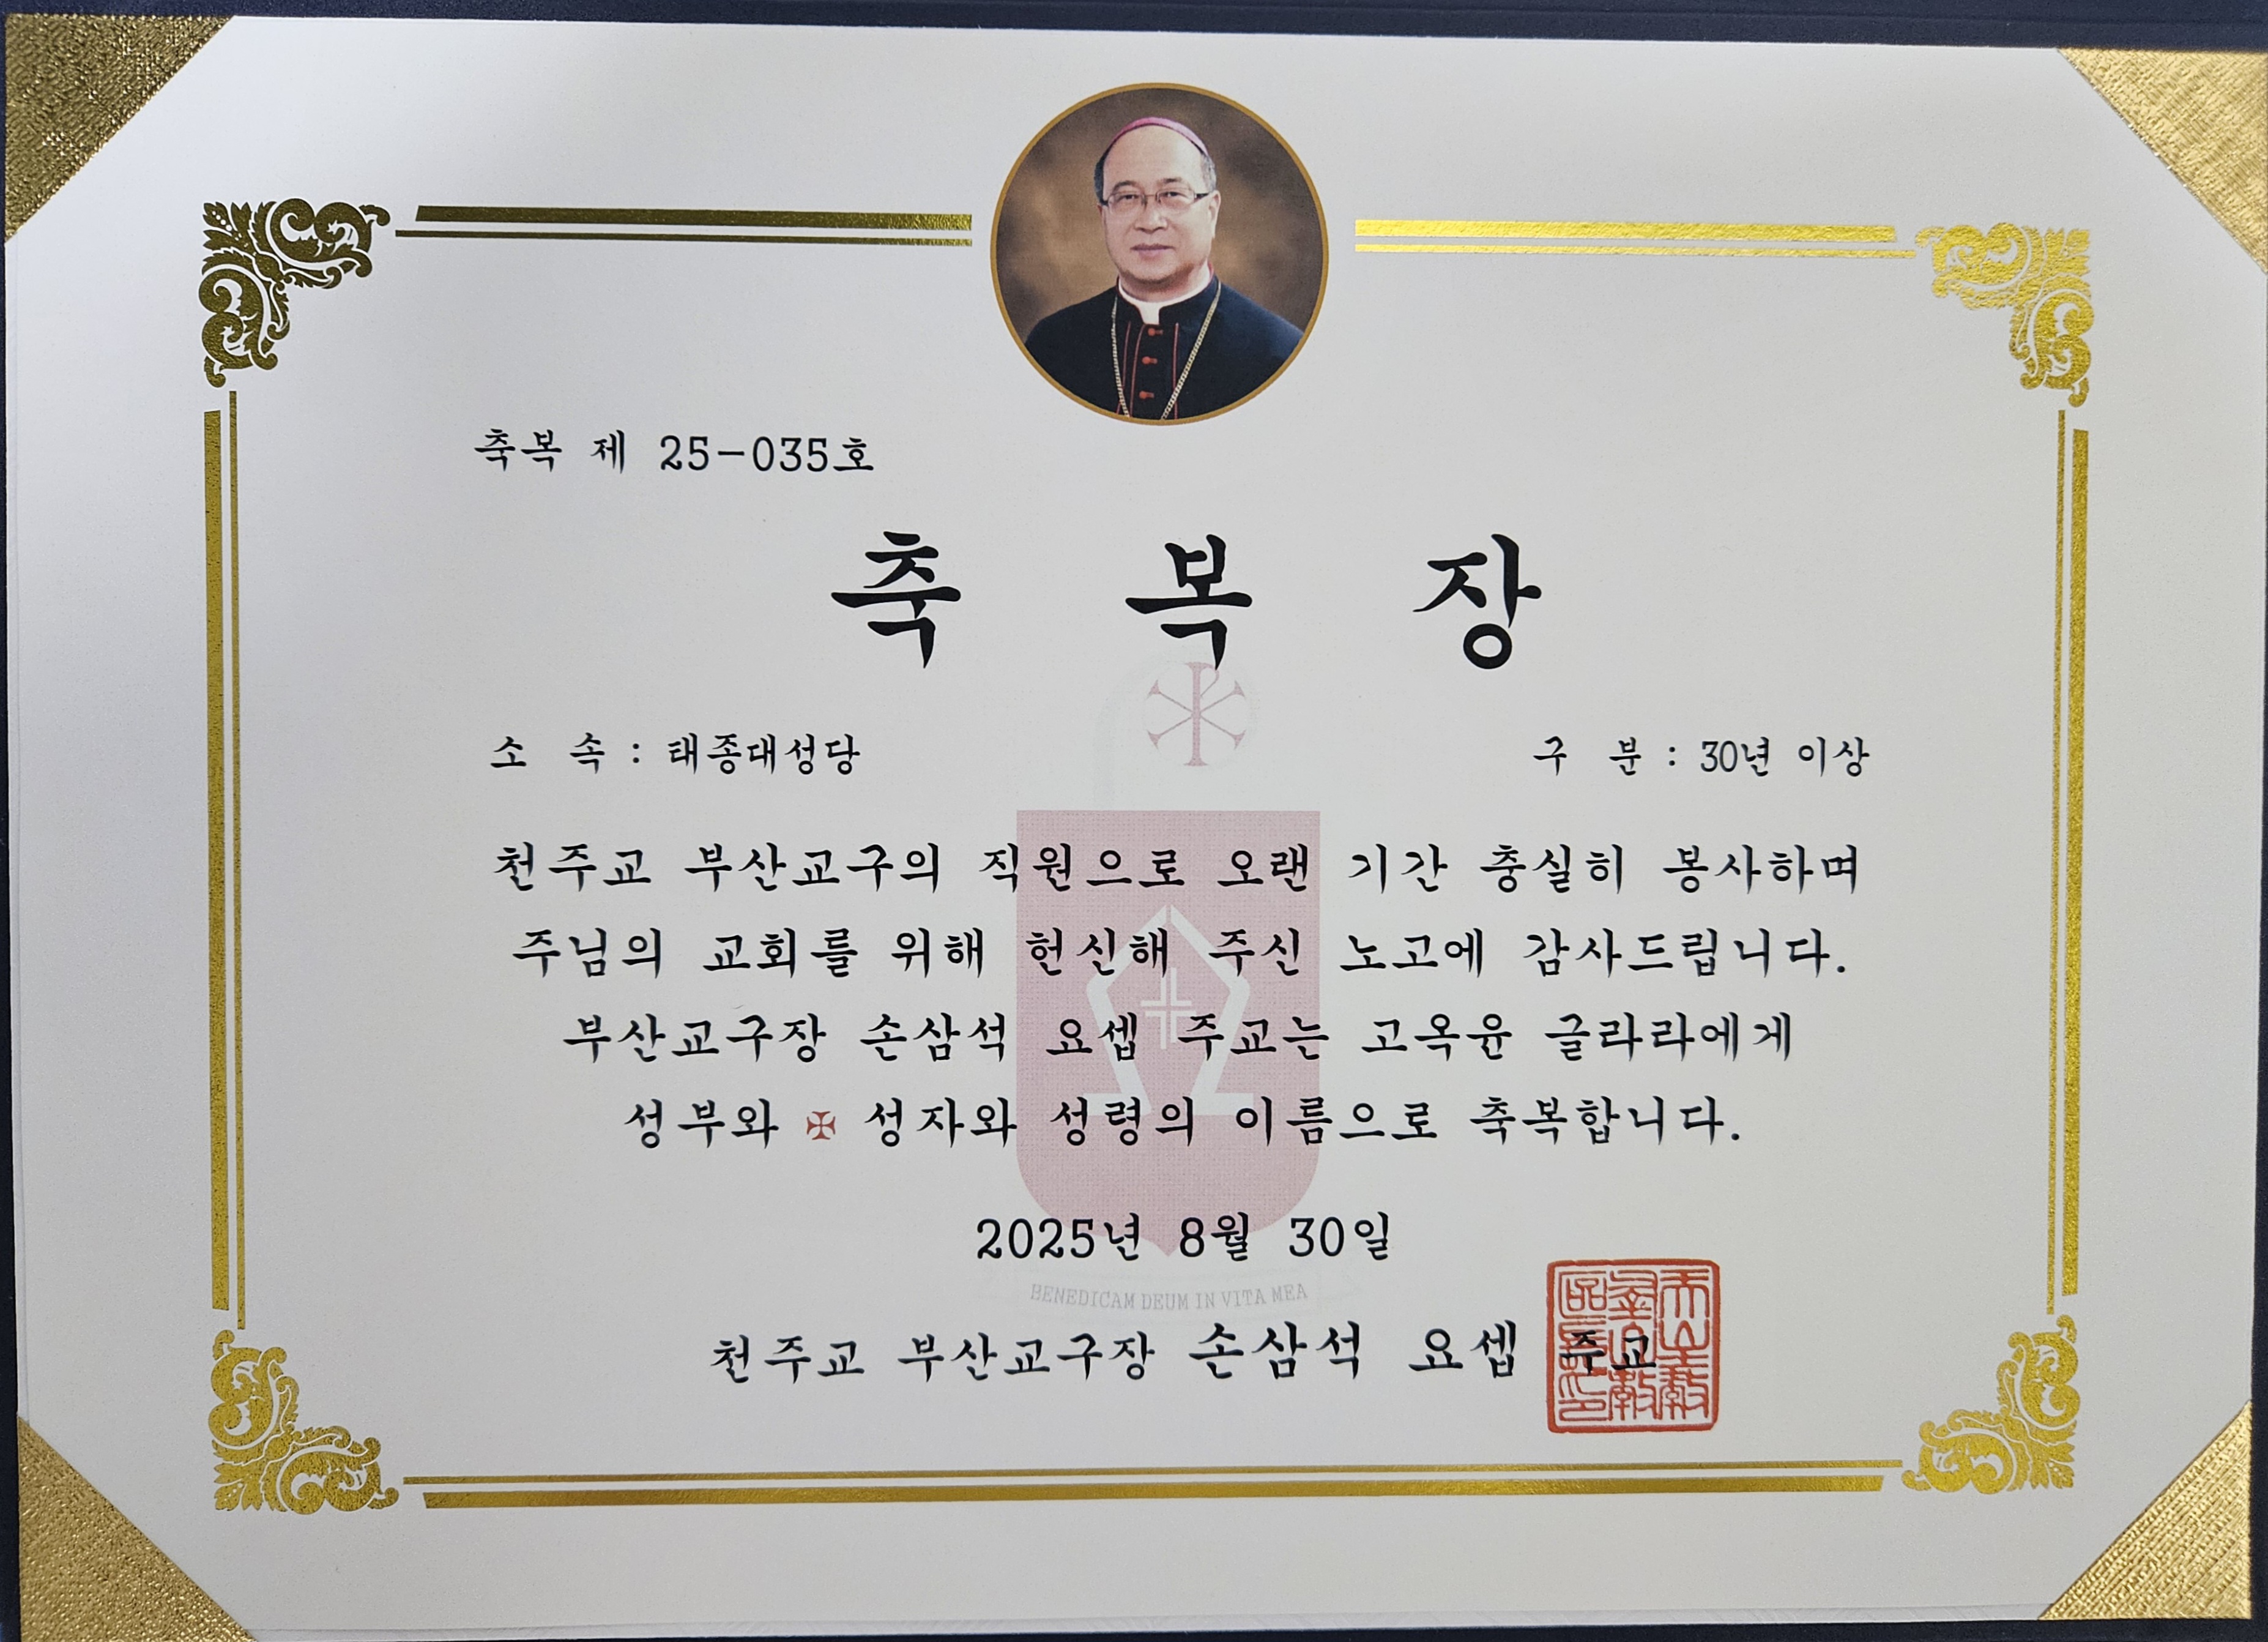 축복 제 25-035호
축 복 장
소 속 : 태종대성당
구 분 : 30년 이상
천주교 부산교구의 직원으로 오랜 기간 충실히 봉사하며
주님의 교회를 위해 헌신해 주신 노고에 감사드립니다.
부산교구장 손삼석 요셉 주교는 고옥윤 글라라에게
성부와 ✠ 성자와 성령의 이름으로 축복합니다.
2025년 8월 30일
BENEDICAM DEUM IN VITA MEA
천주교 부산교구장 손삼석 요셉 주교